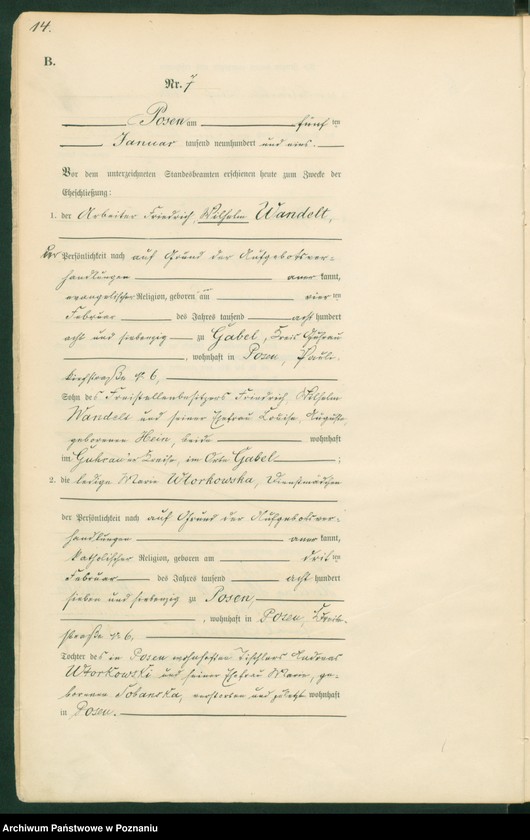 14.
B.
Nr. 7
Posen am fünf ten
Januar tausend neunhundert und eins.
Vor dem unterzeichneten Standesbeamten erschienen heute zum Zwecke der
Eheschließung:
1. der Arbeiter Friedrich, Wilhelm Wandelt,
der Persönlichkeit nach auf Grund der Aufgebotsver-
handlungen aner kannt,
evangelischer Religion, geboren am vier ten
Februar des Jahres tausend acht hundert
acht und siebenzig zu Gabel, Kreis Guhrau
, wohnhaft in Posen, Pauli-
kirchstraße № 6,
Sohn des Freistellenbesitzers Friedrich, Wilhelm
Wandelt und seiner Ehefrau Louise, Auguste,
geborenen Hein, beide wohnhaft
im Guhrau'er Kreise, im Orte Gabel ;
2. die ledige Marie Wtorkowska, Dienstmädchen
der Persönlichkeit nach auf Grund der Aufgebotsver-
handlungen aner kannt,
katholischer Religion, geboren am drit ten
Februar des Jahres tausend acht hundert
sieben und siebenzig zu Posen,
, wohnhaft in Posen,
straße № 6,
Tochter des in Posen wohnhaften Tischlers Andreas
Wtorkowski und seiner Ehefrau Marie, ge-
borenen verstorben und zuletzt wohnhaft
in Posen.
Archiwum Państwowe w Poznaniu